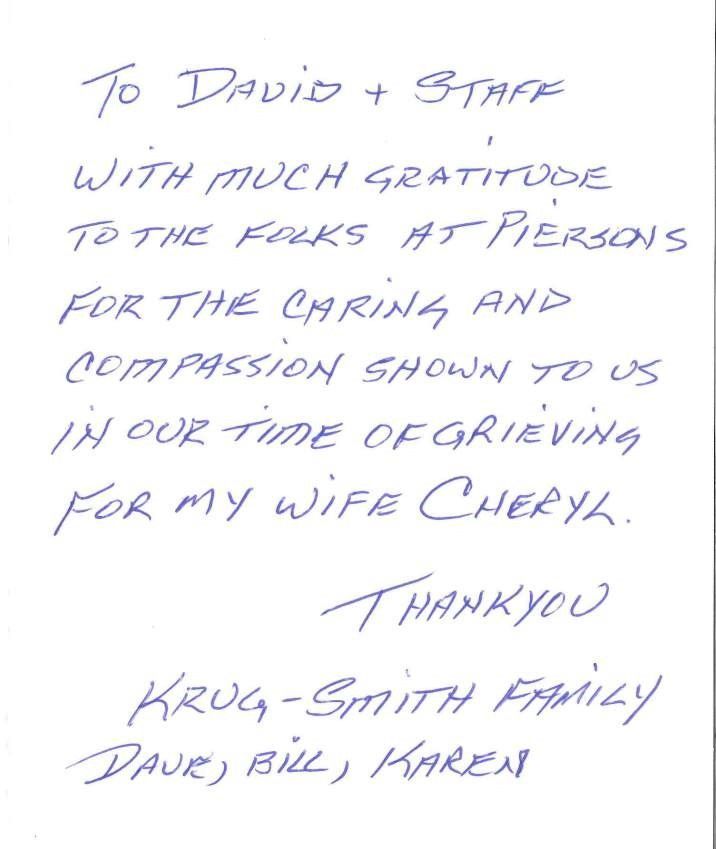 To DAViD + STAFF
WiTH MUCH GRATiTUDE
TO THE FOLKS AT PiERSONS
FOR THE CARiNG AND
COMPASSiON SHOWN TO US
iN OUR TiME OF GRiEViNG
FOR MY WiFE CHERYL.
THANKYOU
KRUG-SMiTH FAMiLY
DAVE, BiLL, KAREN